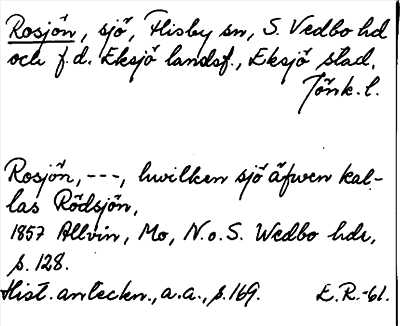 Rosjön, sjö, Flisby sn, S. Vedbo hd
och f.d. Eksjö landsf., Eksjö stad,
Jönk. l.
Rosjön, ---, hwilken sjö äfwen kal-
las Rödsjön,
1857 Allvin, Mo, N. o. S. Wedbo hdr,
s. 128.
Hist. anteckn., a.a., s. 169. E.R.-61.